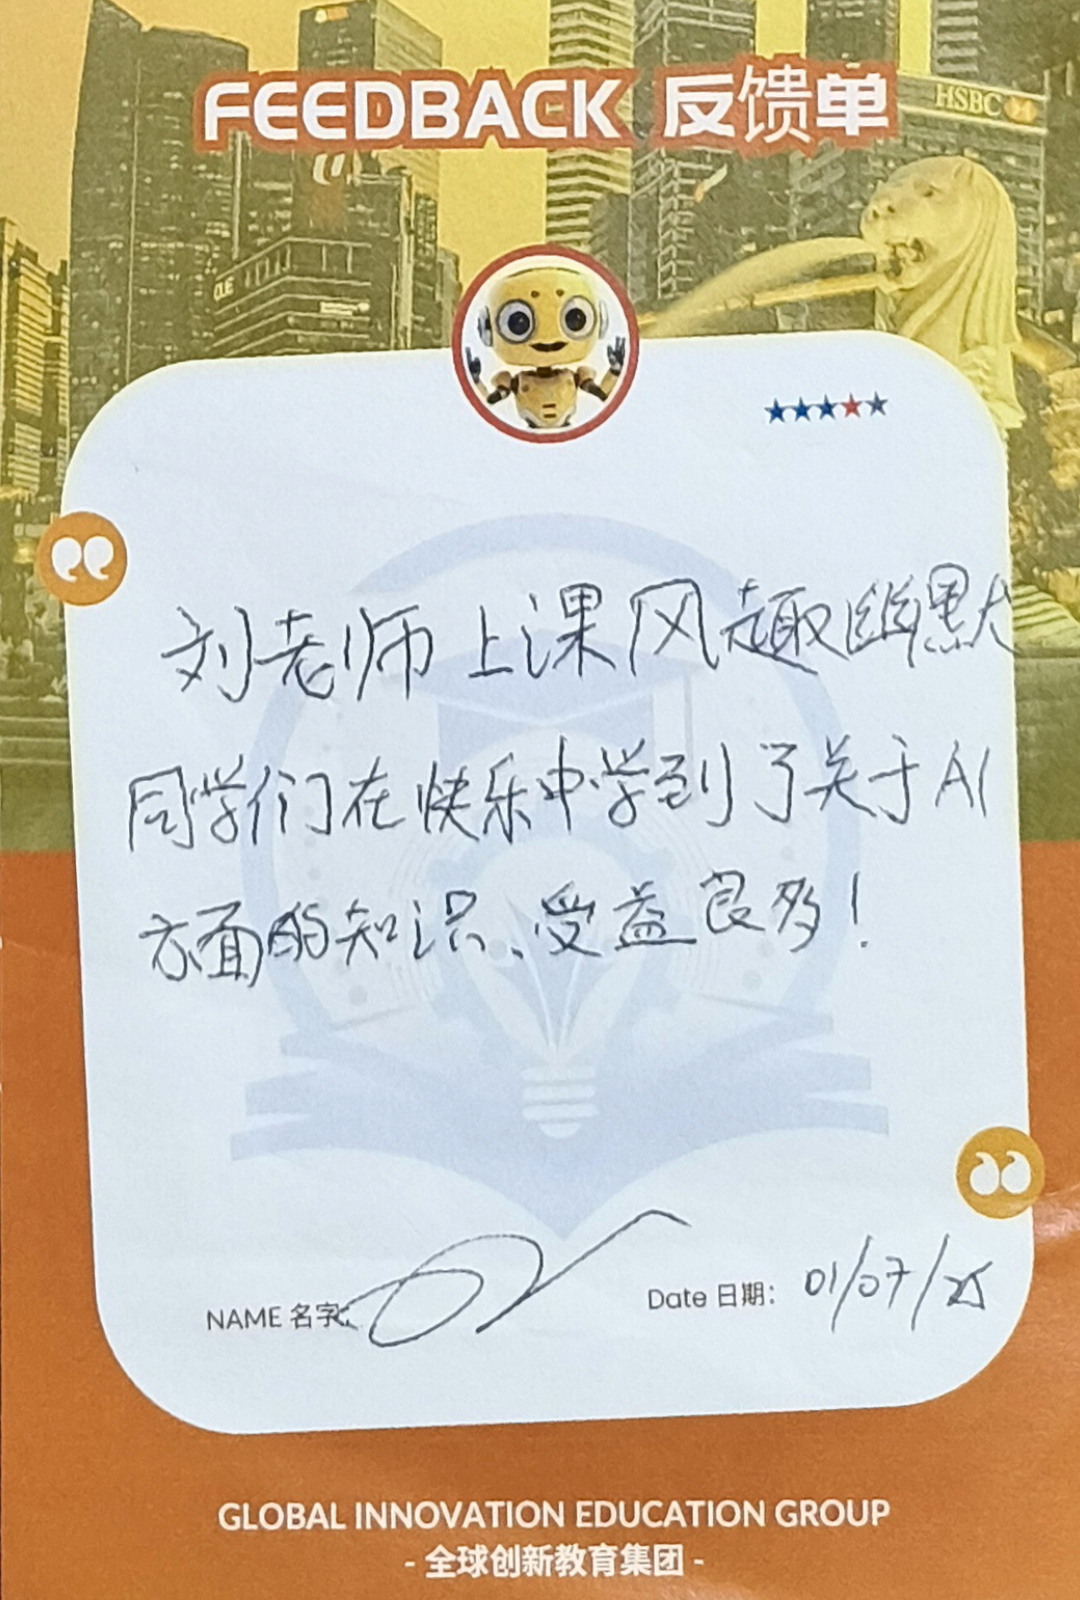 FEEDBACK 反馈单
HSBC
刘老师上课风趣幽默
同学们在快乐中学到了关于AI
方面的知识、受益良多!
NAME 名字:
Date 日期: 01/07/25
GLOBAL INNOVATION EDUCATION GROUP
- 全球创新教育集团 -